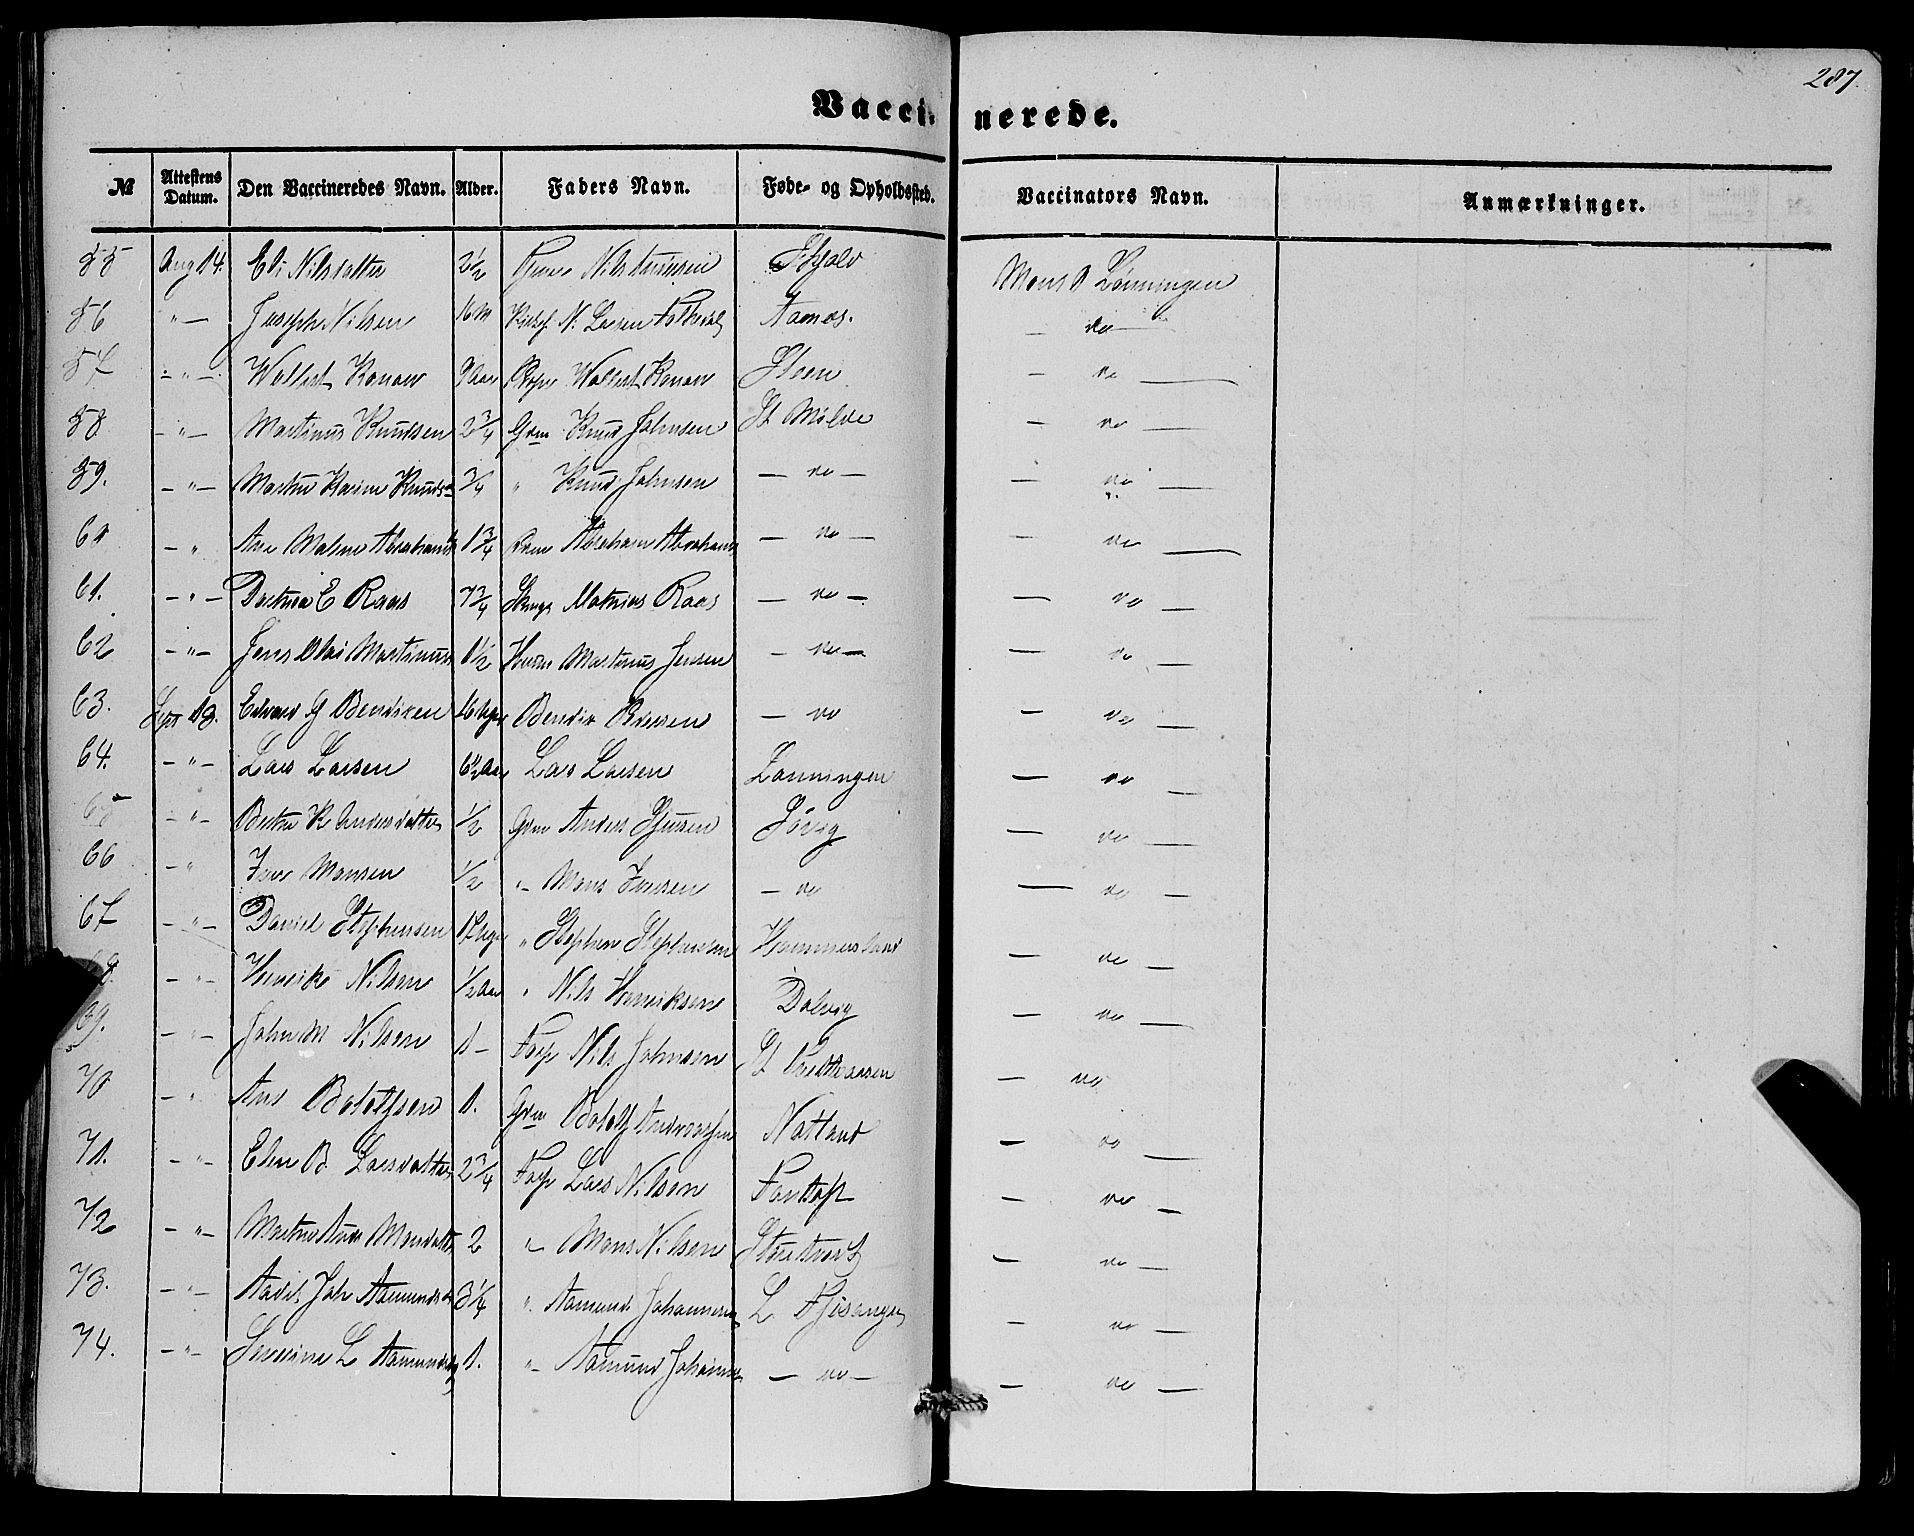 287.
Vaccinerede.
№ Attestens Datum. Den Vaccineredes Navn. Alder. Faders Navn. Føde- og Opholdssted. Vaccinators Navn. Anmærkninger.
55 Aug 14. Eli Nilsdatter 2½ Nils Mons O Lønningen
56 " Joseph Nilsen 16 M N. Larsen Aamæs. — do —
57 " Wollert Konow 9 Aar Wollert Konow Steen — do —
58 " Martinus Knudsen 2¾ Grm Knud Johnsen St Milde — do —
59. " Marthe Karine Knuds ¾ " Knud Johnsen — do — — do —
60 " Ane Malene Abrahamsd 1¾ Abraham Abrahams — do — — do —
61. " Dorthea E Raas 7¾ Mathias Raas — do — — do —
62 " Jens Olai Martinus 1½ Martinus Jensen — do — — do —
63. Sept 18. Edvard G Bendixen 16 Uger Bendix — do — do —
64. " Lars Larsen 6½ Aar Lars Larsen Lønningen — do —
65 " Berthe K Andersdatter ½ Grm Anders — do —
66 " Iver Monsen ½ " Mons Iversen — do — do —
67 " Daniel Stephensen 17 Uger " Stephen Stephensen Hammersland — do —
68. " Henrik Nilsen ½ Aar " Nils Henriksen Dolvig — do —
69. " John M Nilsen 1 — Nils Johnsen — do
70 " Ans Botolfsen 1. Grm Botolf Nattland — do —
71. " Elen B Larsdatter 2¾ Lars Nilsen Fantoft — do —
72 " Marthe Monsdatter 2 " Mons Nilsen — do —
73. " Joh Aamunds 3¼ " Aamund Johannesen L Fjøsanger — do —
74. " Severine L Aamunds 1. " Aamund Johannes — do — — do —